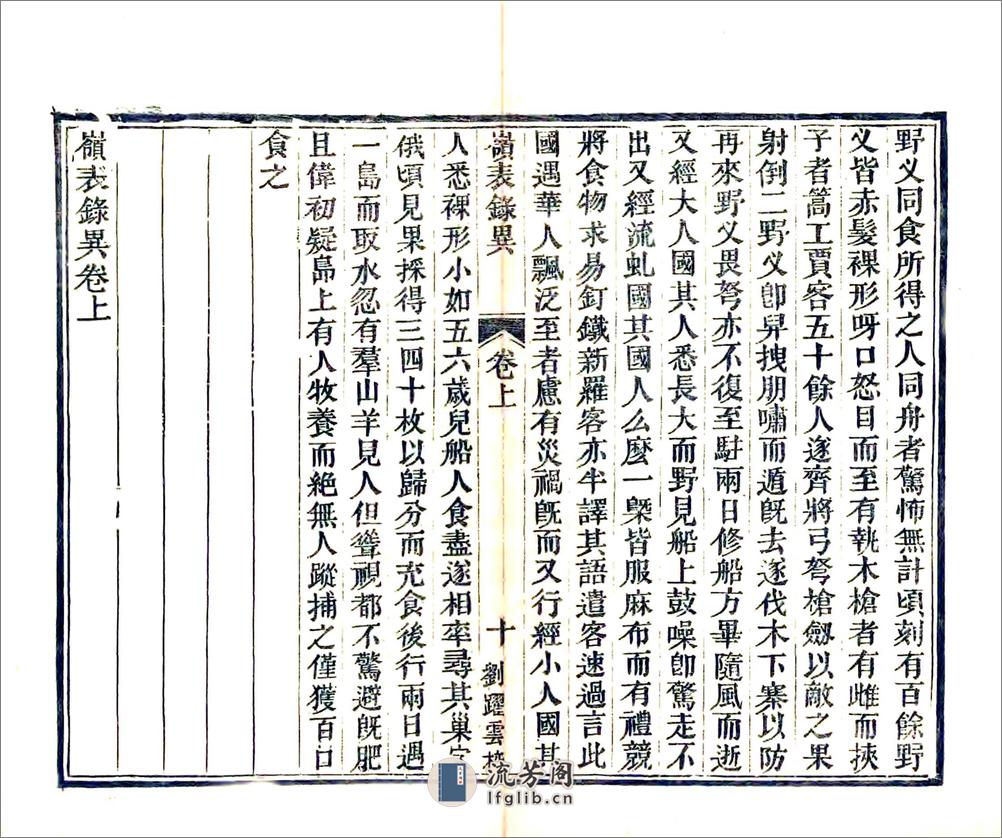 野义同食所得之人同舟者驚怖無計頃刻有百餘野
义皆赤髮裸形呀口怒目而至有執木槍者有雌而挾
子者篙工賈客五十餘人遂齊將弓弩槍劔以敵之果
射倒二野义卽舁拽朋嘯而遁旣去遂伐木下寨以防
再來野义畏弩亦不復至駐兩日修船方畢隨風而逝
又經大人國其人悉長大而野見船上鼓噪卽驚走不
出又經流虬國其國人么麼一槩皆服麻布而有禮競
將食物求易釘鐵新羅客亦半譯其語遣客速過言此
國遇華人飄泛至者慮有災禍旣而又行經小人國其
嶺表錄異
卷上
十
劉躍雲校
人悉裸形小如五六歲兒船人食盡遂相率尋其巢穴
俄頃見果採得三四十枚以歸分而充食後行兩日遇
一島而取水忽有羣山羊見人但聳視都不驚避旣肥
且偉初疑島上有人牧養而絶無人蹤捕之僅獲百口
食之
嶺表錄異卷上
流芳阁
lfglib.cn